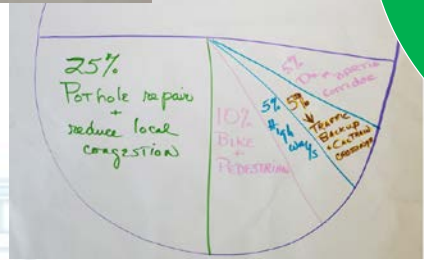 25%
Pothole repair
+
reduce local
congestion
10%
BIKE
+
PEDESTRIAN
5%
High
ways
5%
↓
TRAFFIC
BACKUP
+ CALTRAIN
CROSSINGS
5%
corridor